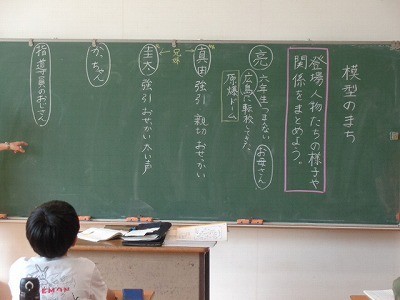 模型のまち
登場人物たちの様子や
関係をまとめよう。
亮 六年生 つまらない
広島に転校してきた。
原爆ドーム
お母さん
真由 強引 親切 おせっかい
兄妹
圭太 強引 おせっかい 太い声
かっちゃん
指導員のおじさん